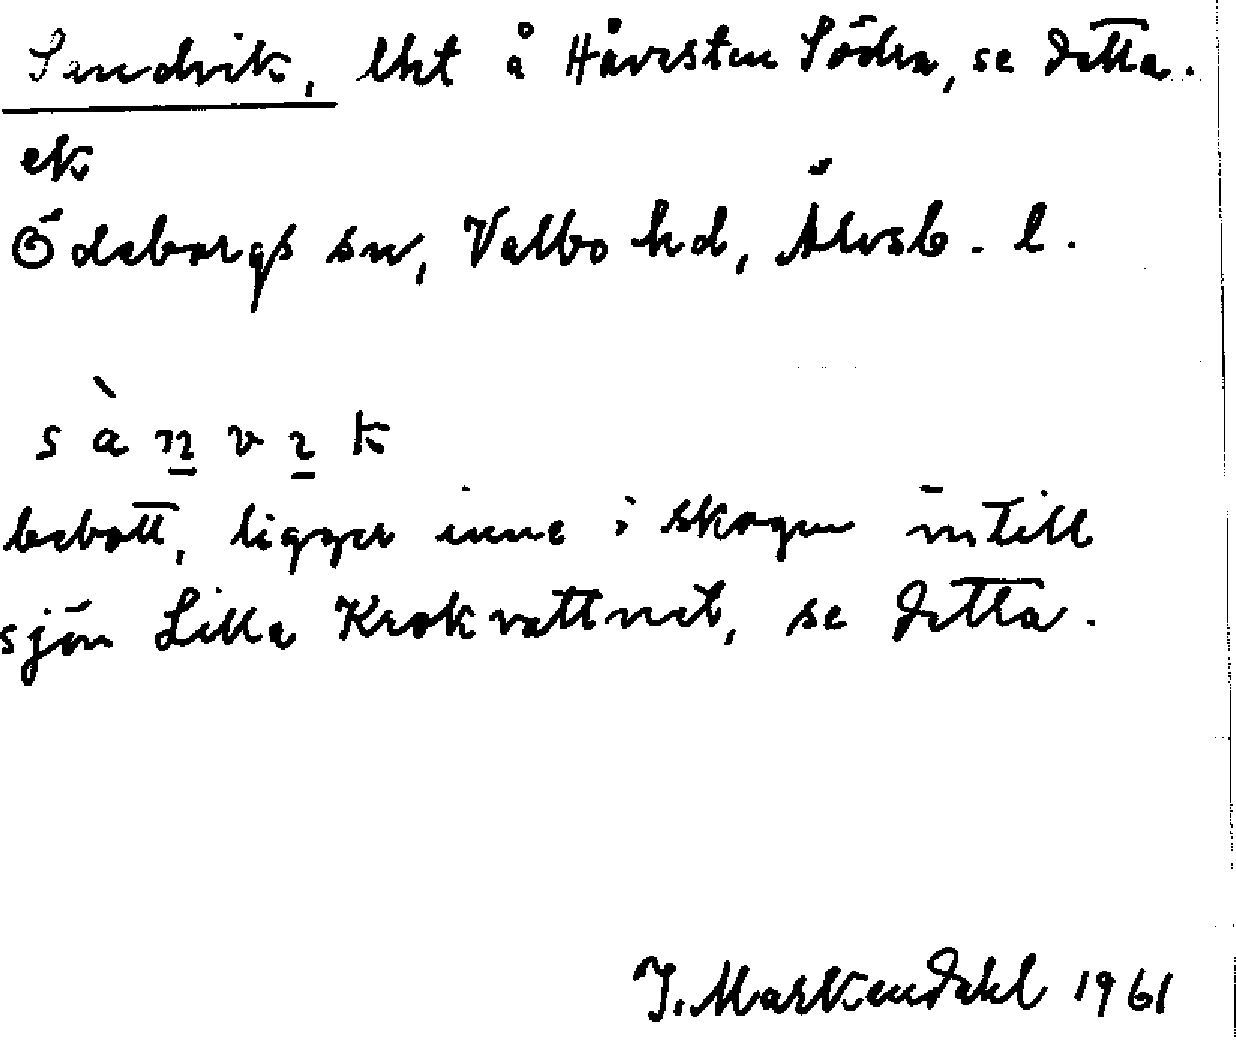 Sandvik, lht å Håvesten Södra, se detta.
ek
Ödeborgs sn, Valbo hd, Älvsb. l.
sànvık
bebott, ligger inne i skogen intill
sjön Lilla Krokvattnet, se detta.
J. Markendahl 1961